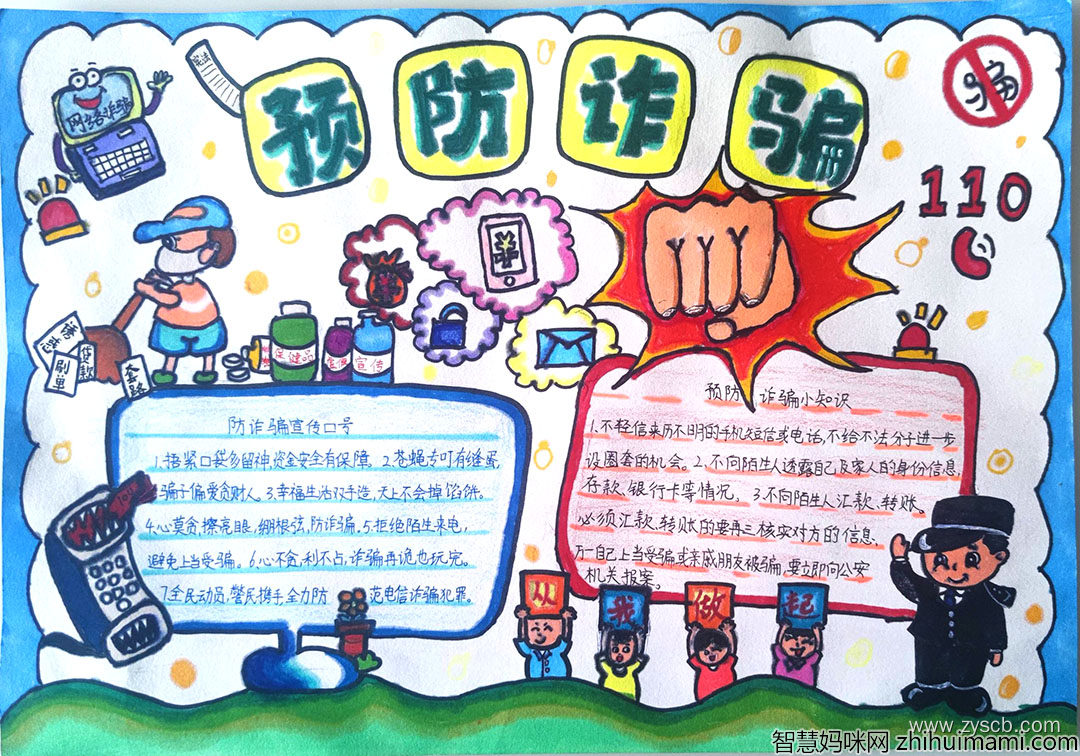 预防诈骗
骗
网络诈骗
110
刷单
贷款
套路
保健品
宣传
防诈骗宣传口号
1.捂紧口袋多留神,资金安全有保障。2.苍蝇专叮有缝蛋,
骗子偏爱贪财人。3.幸福生活双手造,天上不会掉馅饼。
4.心莫贪,擦亮眼,绷根弦,防诈骗。5.拒绝陌生来电,
避免上当受骗。6.心不贪,利不占,诈骗再诡也玩完。
7.全民动员,警民携手全力防范电信诈骗犯罪。
预防诈骗小知识
1.不轻信来历不明的手机短信或电话,不给不法分子进一步
设圈套的机会。2.不向陌生人透露自己及家人的身份信息,
存款、银行卡等情况。3.不向陌生人汇款、转账。
必须汇款、转账的要再三核实对方的信息,
万一自己上当受骗或亲戚朋友被骗,要立即向公安
机关报案。
从我做起
www.zyscb.com
智慧妈咪网 zhihuimami.com